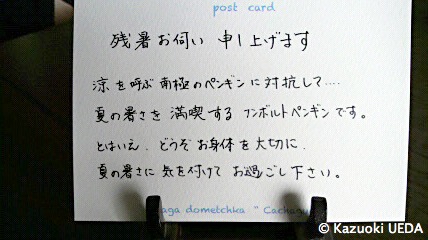 post card
残暑お伺い 申し上げます
涼を呼ぶ 南極のペンギンに対抗して....
夏の暑さを 満喫する フンボルトペンギンです。
とはいえ、どうぞ お身体を大切に、
夏の暑さに 気を付けて お過ごし下さい。
aga dometchka " Cachag
© Kazuoki UEDA